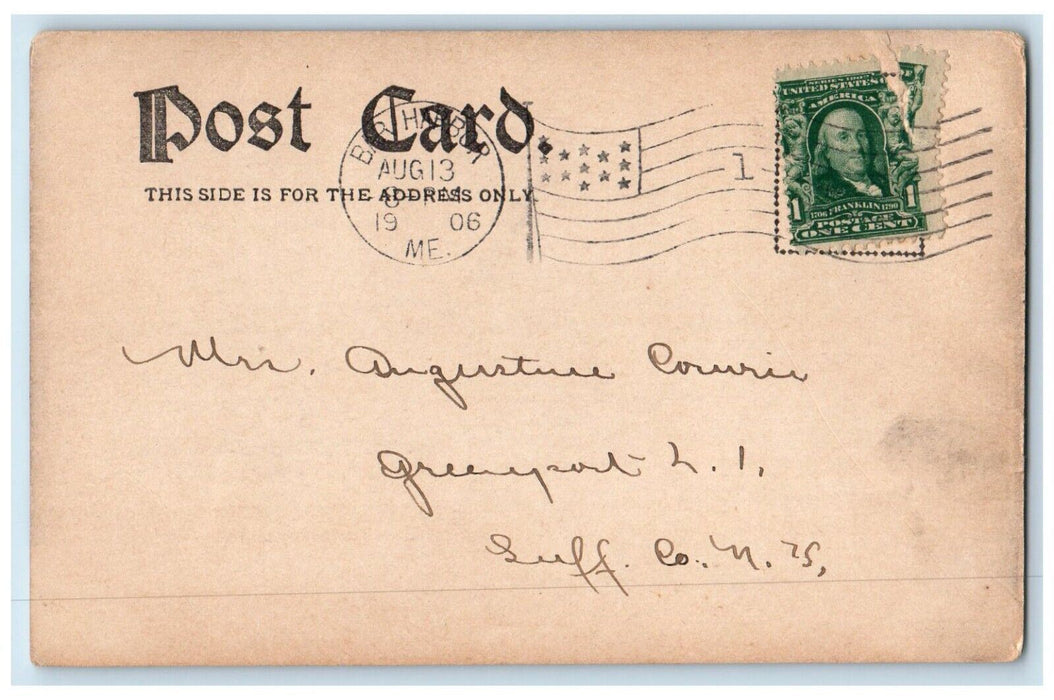 Post Card.
THIS SIDE IS FOR THE ADDRESS ONLY.
BAR HARBOR
AUG 13
1906
ME.
1
SERIES 1902
UNITED STATES OF
AMERICA
1706 FRANKLIN 1790
1 1
POSTAGE
ONE CENT
Mrs. Augustine Cowrie
Greenport L. I.
Suff. Co. N. Y.